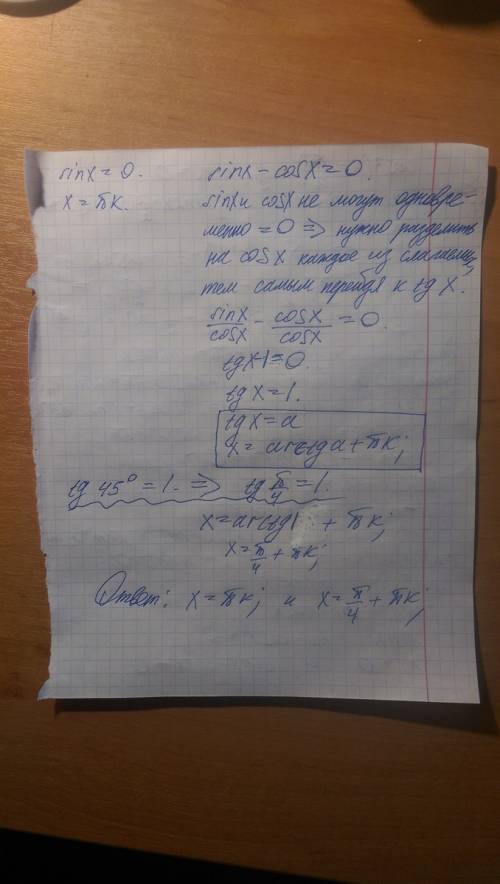 sinx = 0.
x = πк.
sinx - cosx = 0.
sinx и cosx не могут одновре-
менно = 0 => нужно разделить
на cosx каждое из слагаемых,
тем самым перейдя к tg x.
sinx/cosx - cosx/cosx = 0.
tgx-1 = 0.
tg x = 1.
tg x = a
x = arctg a + πк;
tg 45° = 1. => tg π/4 = 1.
x = arctg1 + πк;
x = π/4 + πк;
Ответ: x = πк; и x = π/4 + πк;